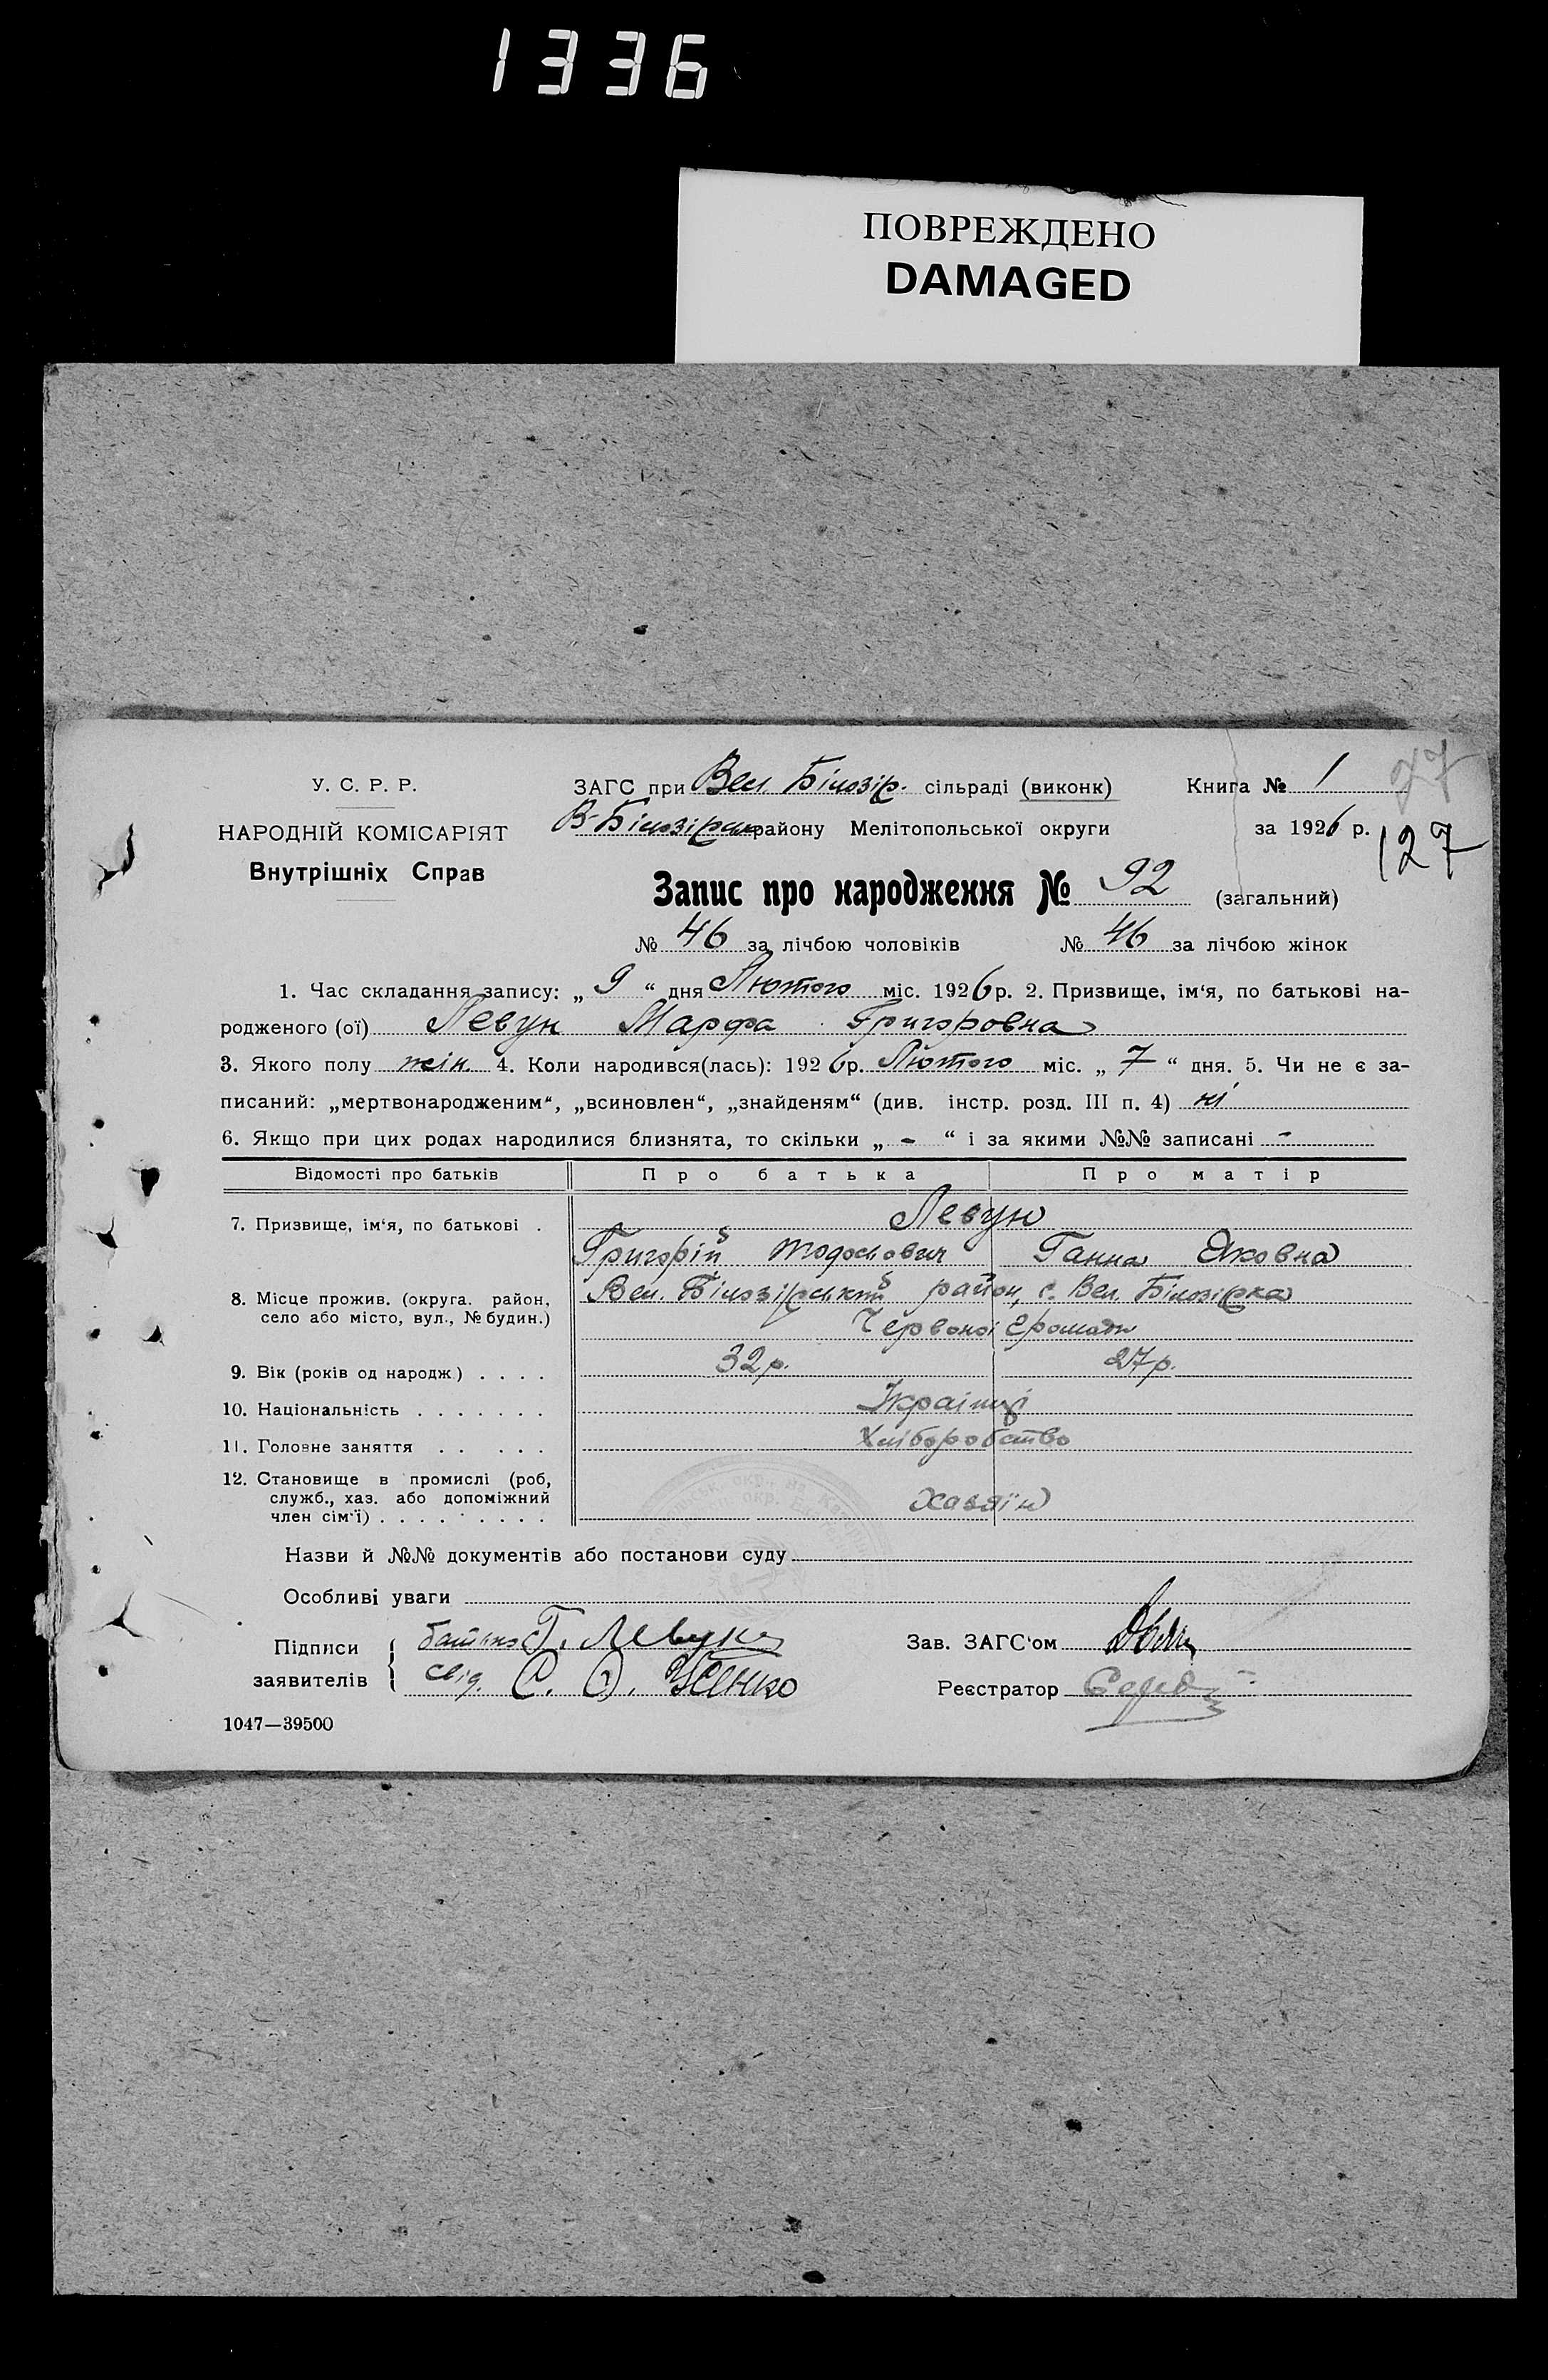 1336
ПОВРЕЖДЕНО
DAMAGED
27
127
У. С. Р. Р.
НАРОДНІЙ КОМІСАРІЯТ
Внутрішніх Справ
ЗАГС при Вел Білозір. сільраді (виконк) Книга № 1
В-Білозірськ району Мелітопольської округи за 1926 р.
Запис про народження № 92 (загальний)
№ 46 за лічбою чоловіків № 46 за лічбою жінок
1. Час складання запису: „ 9 “ дня Лютого міс. 1926 р. 2. Призвище, ім‘я, по батькові на-
родженого (ої) Левун Марфа Григоровна
3. Якого полу жін. 4. Коли народився(лась): 1926 р. Лютого міс. „ 7 “ дня. 5. Чи не є за-
писаний: „мертвонародженим“, „всиновлен“, „знайденям“ (див. інстр. розд. III п. 4) ні
6. Якщо при цих родах народилися близнята, то скільки „ - “ і за якими №№ записані -
Відомості про батьків Про батька Про матір
7. Призвище, ім‘я, по батькові . Левун
Григорій Тодосьович Ганна Яковна
8. Місце прожив. (округа. район, село або місто, вул., № будин.) Вел. Білозірський район, с. Вел. Білозірка
Червоної Громади
9. Вік (років од народж) . . . . 32 р. 27 р.
10. Національність . . . . . . . Українці
11. Головне заняття . . . . . Хліборобство
12. Становище в промислі (роб, служб., хаз. або допоміжний член сім‘ї) . . . . . . . . . Хазяїн
Назви й №№ документів або постанови суду
Особливі уваги
Підписи заявителів { батько Г. Левун
свід. С. Усенко
Зав. ЗАГС‘ом
Реєстратор
1047—39500